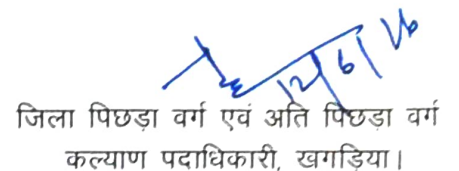 12/6/26
जिला पिछड़ा वर्ग एवं अति पिछड़ा वर्ग
कल्याण पदाधिकारी, खगड़िया।